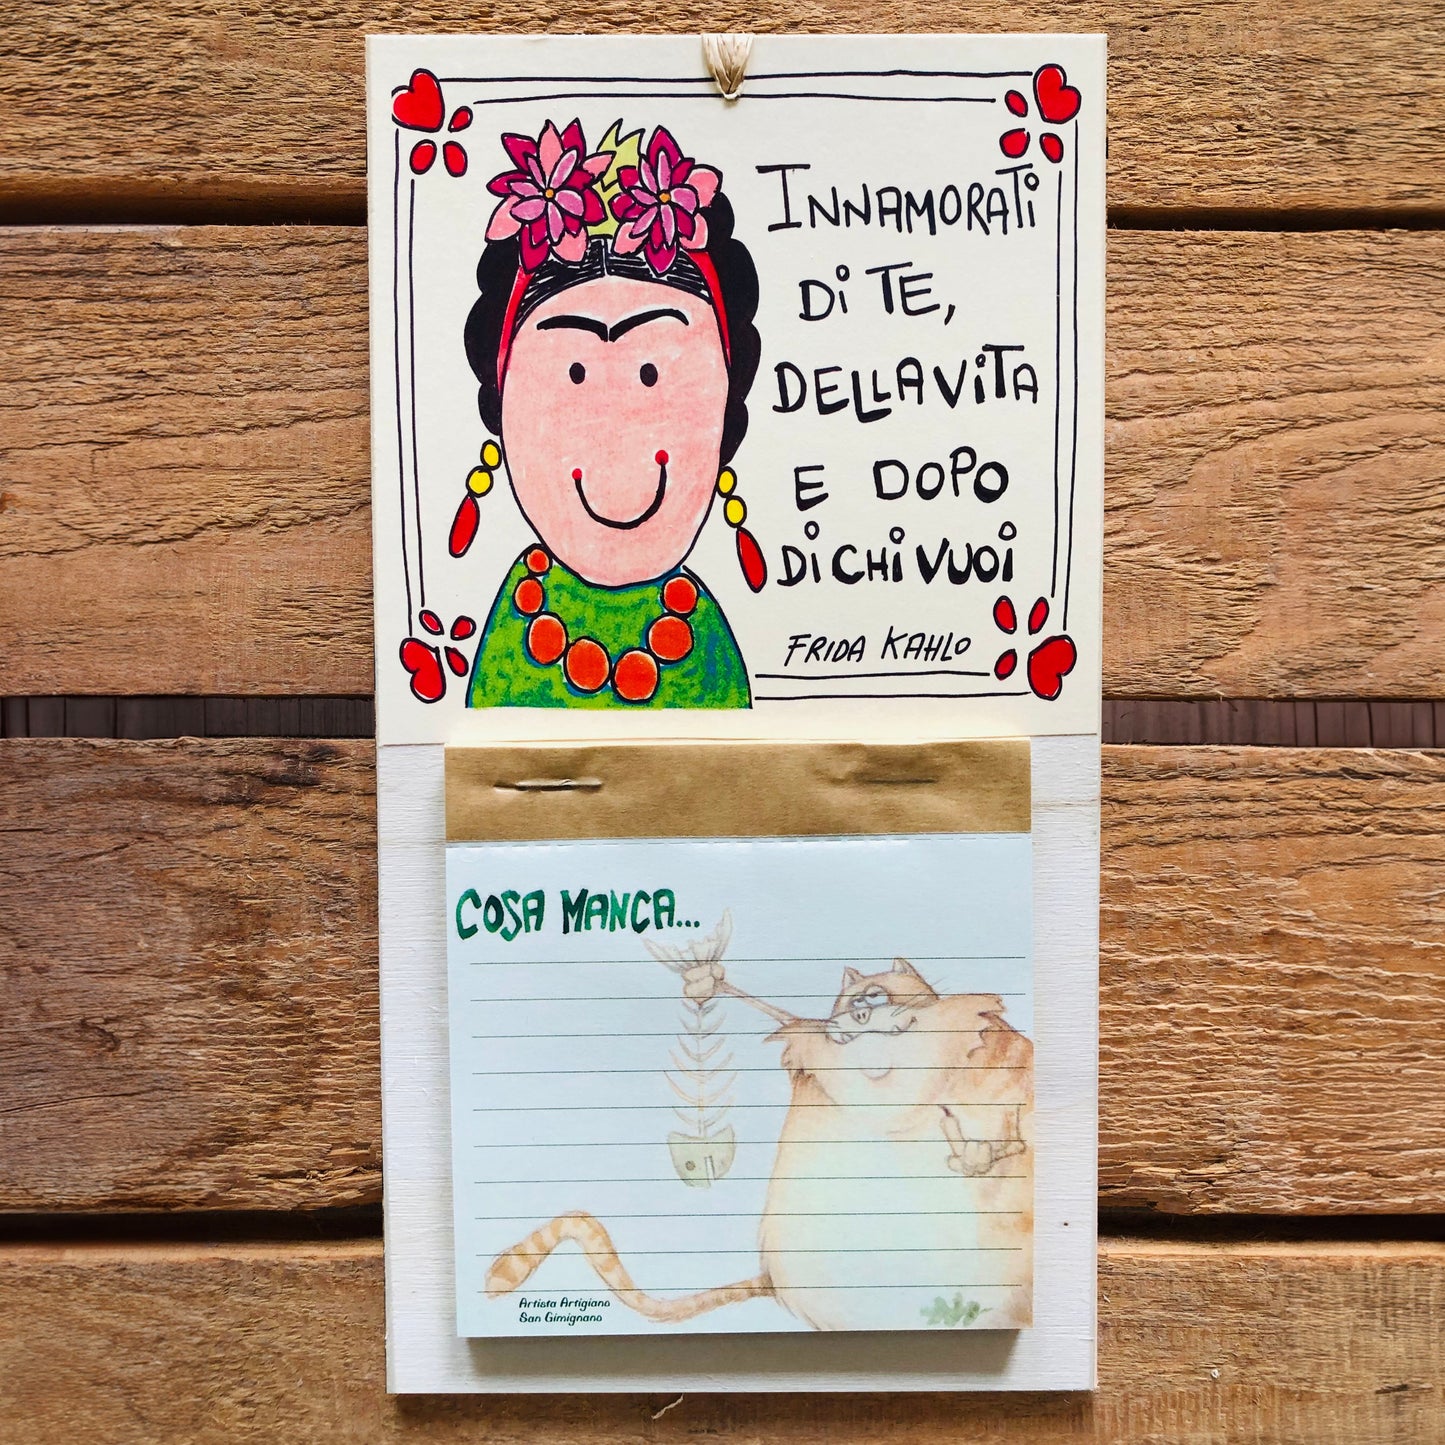 INNAMORATi
Di TE,
DELLA ViTA
E DOPO
Di CHi VUOi
FRIDA KAHLO
COSA MANCA...
Artista Artigiano
San Gimignano